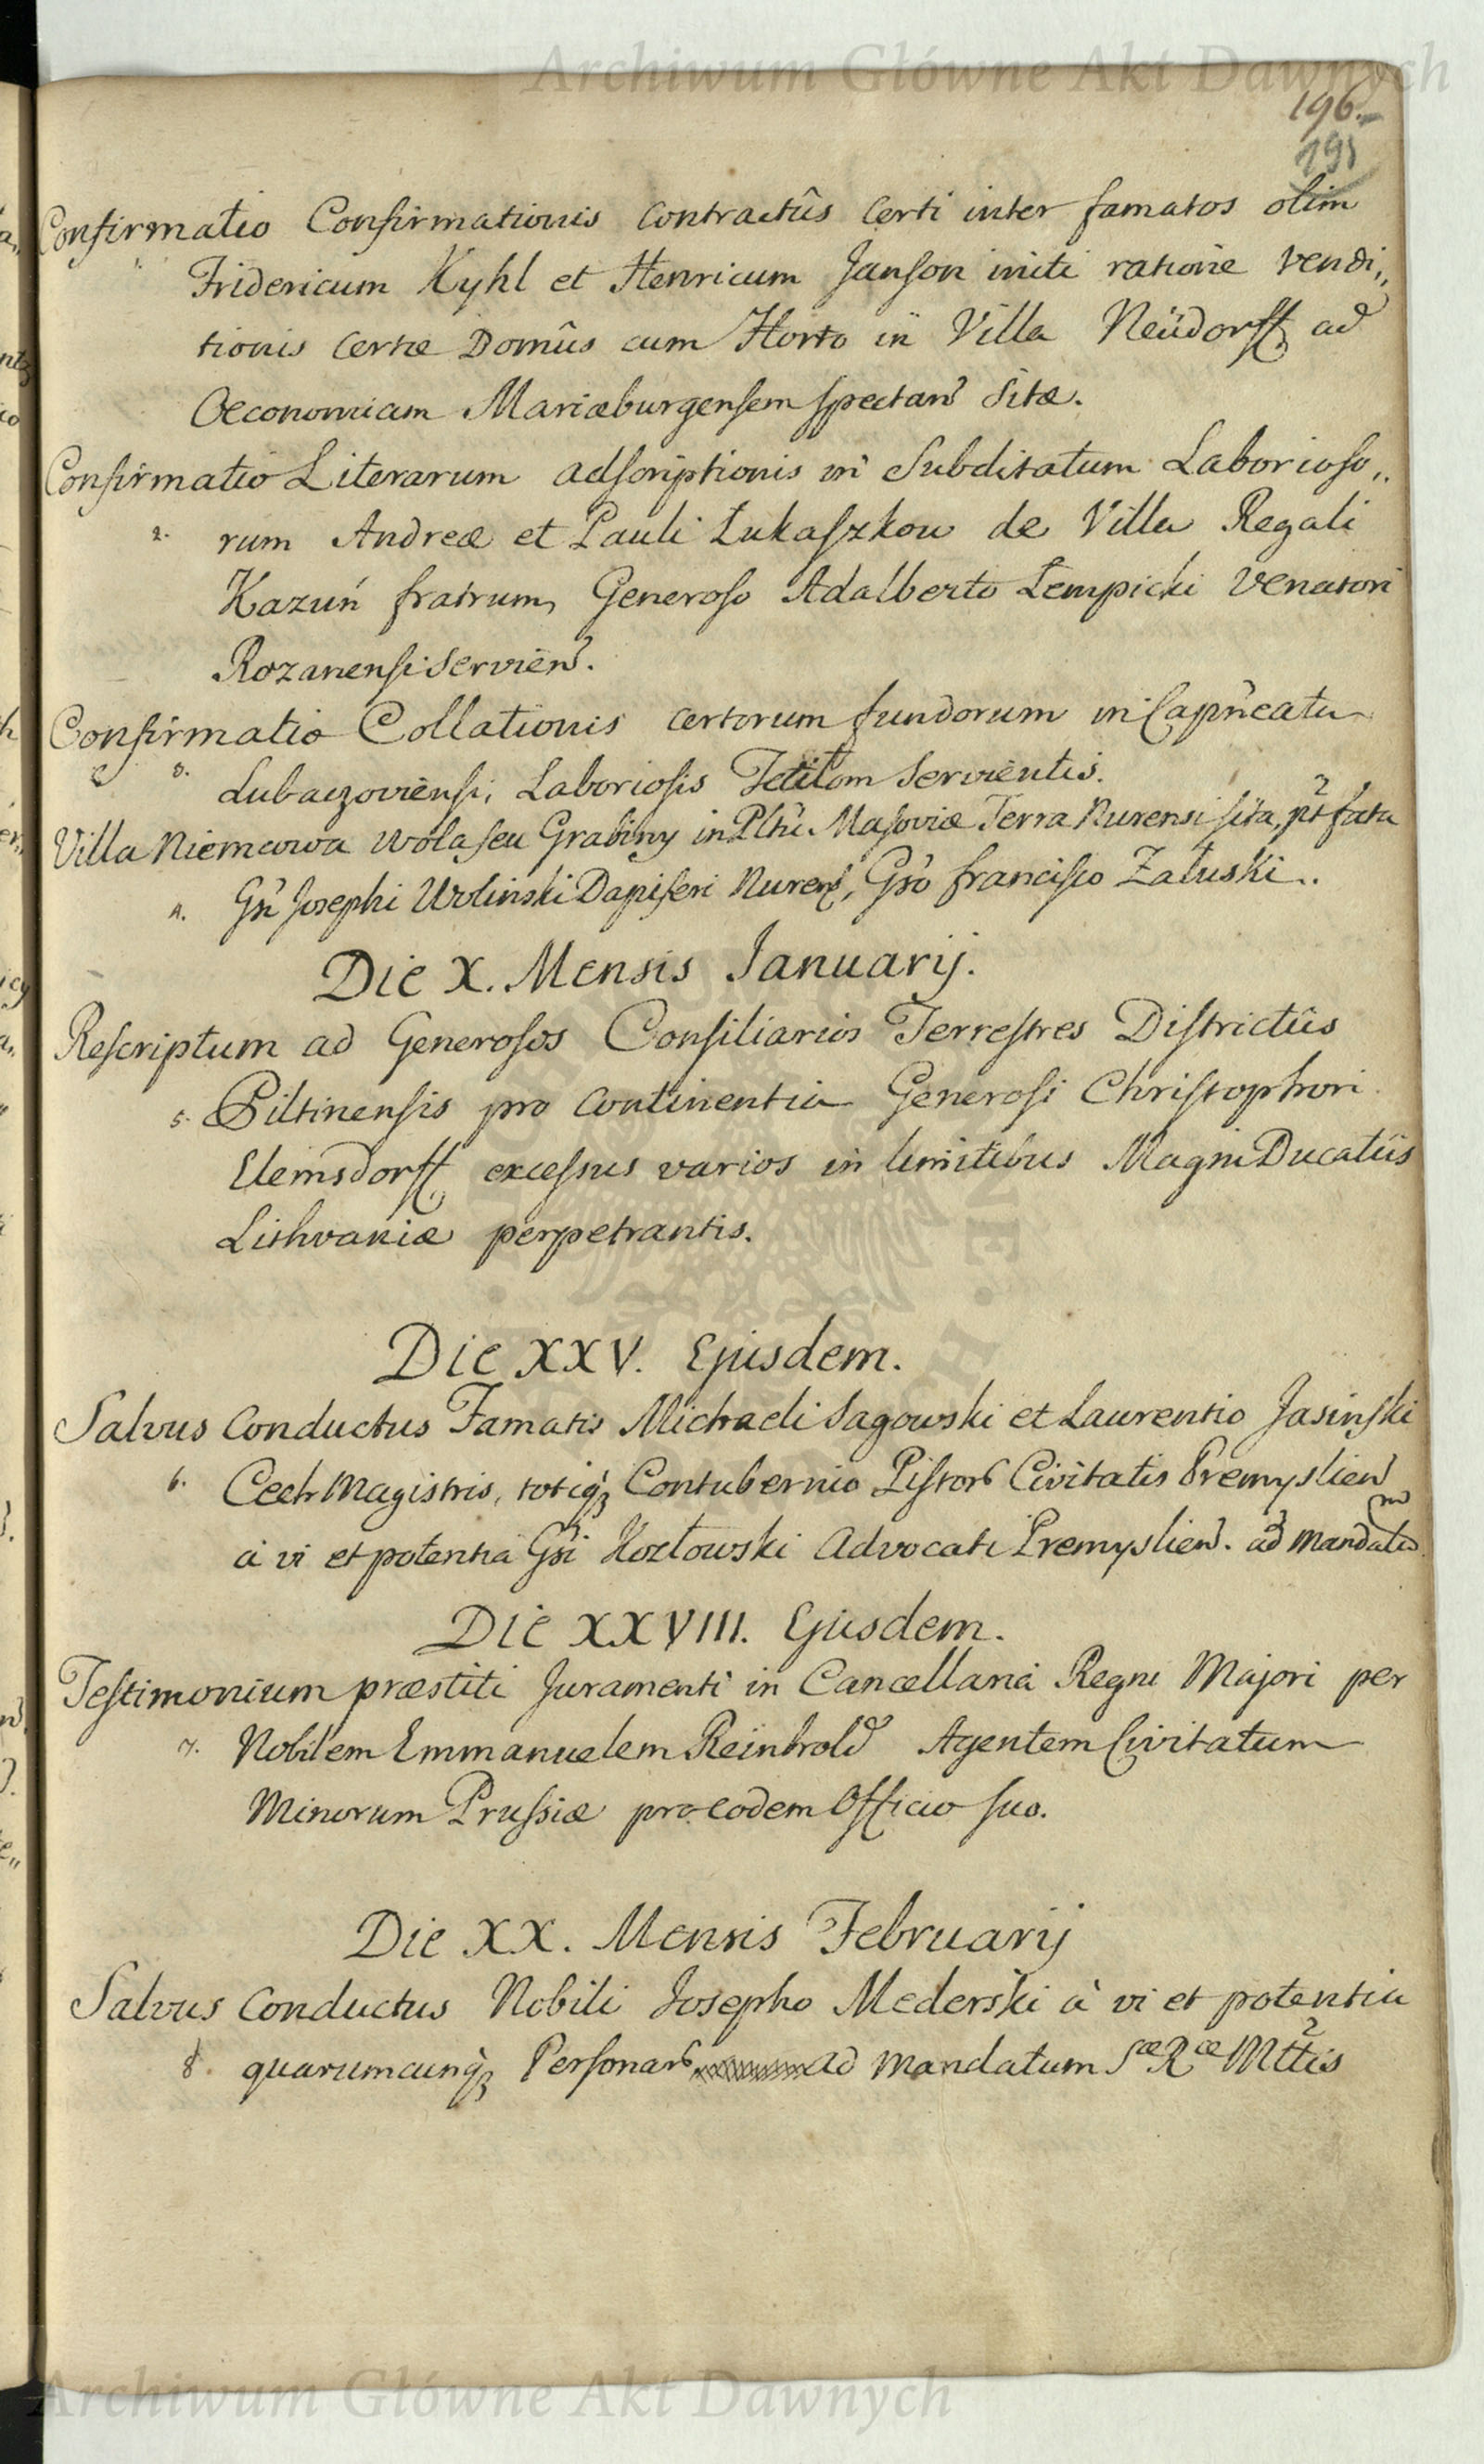 Archiwum Główne Akt Dawnych
196.
195
Confirmatio Confirmationis Contractûs Certi inter famatos olim
Fridericum Kyhl et Henricum Janson initi ratione vendi„
tionis certæ Domûs cum Horto in Villa Neüdorff, ad
Oeconomiam Mariæburgensem spectan̄ sitæ.
Confirmatio Literarum adscriptionis in Subditatum Laborioso„
2. rum Andreæ et Pauli Łukaszkow de Villa Regali
Kazuń fratrum, Generoso Adalberto Łempicki Venatori
Rozanensi Servien̄.
Confirmatio Collationis certorum fundorum in Capn̄eatu
3. Lubaczoviensi, Laboriosis Servientis.
Villa Niemcowa wola seu Grabiny in Pltu. Masoviæ Terra Nurensi sita, pt fata
4. Gn̄ Josephi Wolinski Dapiferi Nuren̄, Gso Francisco Załuski..
Die X. Mensis Januarij.
Rescriptum ad Generosos Consiliarios Terrestres Districtûs
5. Piltinensis pro Continentia Generosi Christophori
Elemsdorff, excessus varios in limitibus Magni Ducatûs
Lithvaniæ perpetrantis.
Die XXV. Ejusdem.
Salvus Conductus Famatis Michaeli Sagowski et Laurentio Jasinski
6. Cech Magistris, totiq̃ Contubernio Pistor Civitatis Premyslien̄
à vi et potentia Gsi Kozłowski Advocati Premyslien̄. ad Mandatum
Die XXVIII. Ejusdem.
Testimonium præstiti Juramenti in Cancellaria Regni Majori per
7. Nobilem Emmanuelem Reinhold Agentem Civitatum
Minorum Prussiæ pro eodem Officio suo.
Die XX. Mensis Februarij
Salvus Conductus Nobili Josepho Mederski à vi et potentia
8. quarumcunq̃ Personar ad Mandatum Sæ Ræ Mttis
Archiwum Główne Akt Dawnych